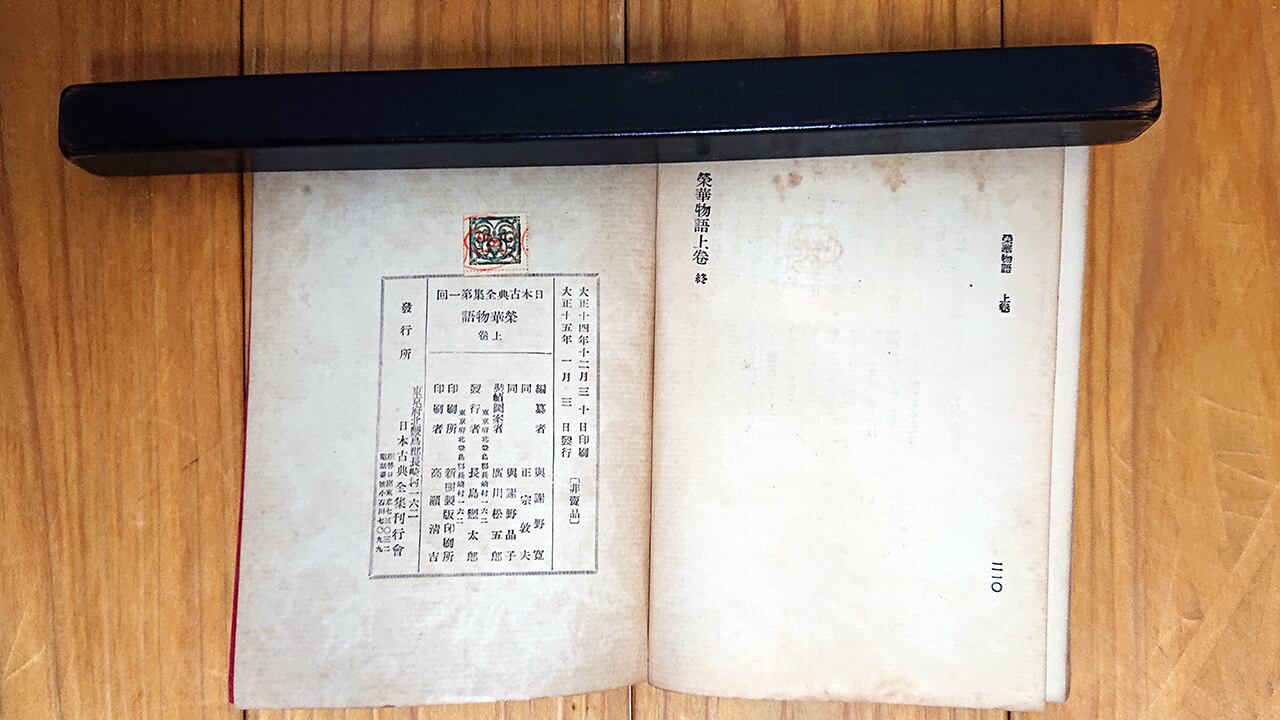 榮華物語 上卷
二一〇
榮華物語上卷 終
大正十四年十二月三十日印刷
大正十五年一月三日發行
〔非賣品〕
日本古典全集第一回
榮華物語
上卷
編纂者 與謝野寬
同 正宗敦夫
同 與謝野晶子
裝幀圖案者 廣川松五郎
東京府北豐島郡長崎村一六二
發行者 長島豐太郎
印刷所 新樹製版印刷所
印刷者 高瀨淸吉
發行所
東京府北豐島郡長崎村一六二
日本古典全集刊行會
振替口座東京七三〇三二
電話番號小石川七〇九九